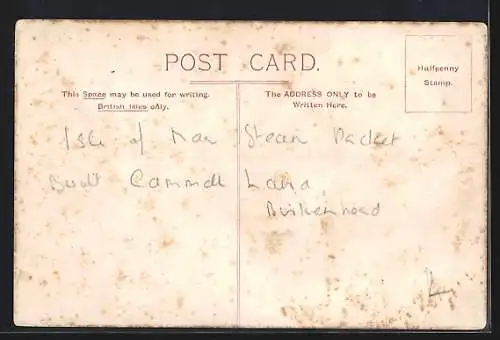 POST CARD.
Halfpenny
Stamp.
This Space may be used for writing.
British Isles only.
The ADDRESS ONLY to be
Written Here.
Isle of Man Steam Packet
Built Cammell Laird
Birkenhead